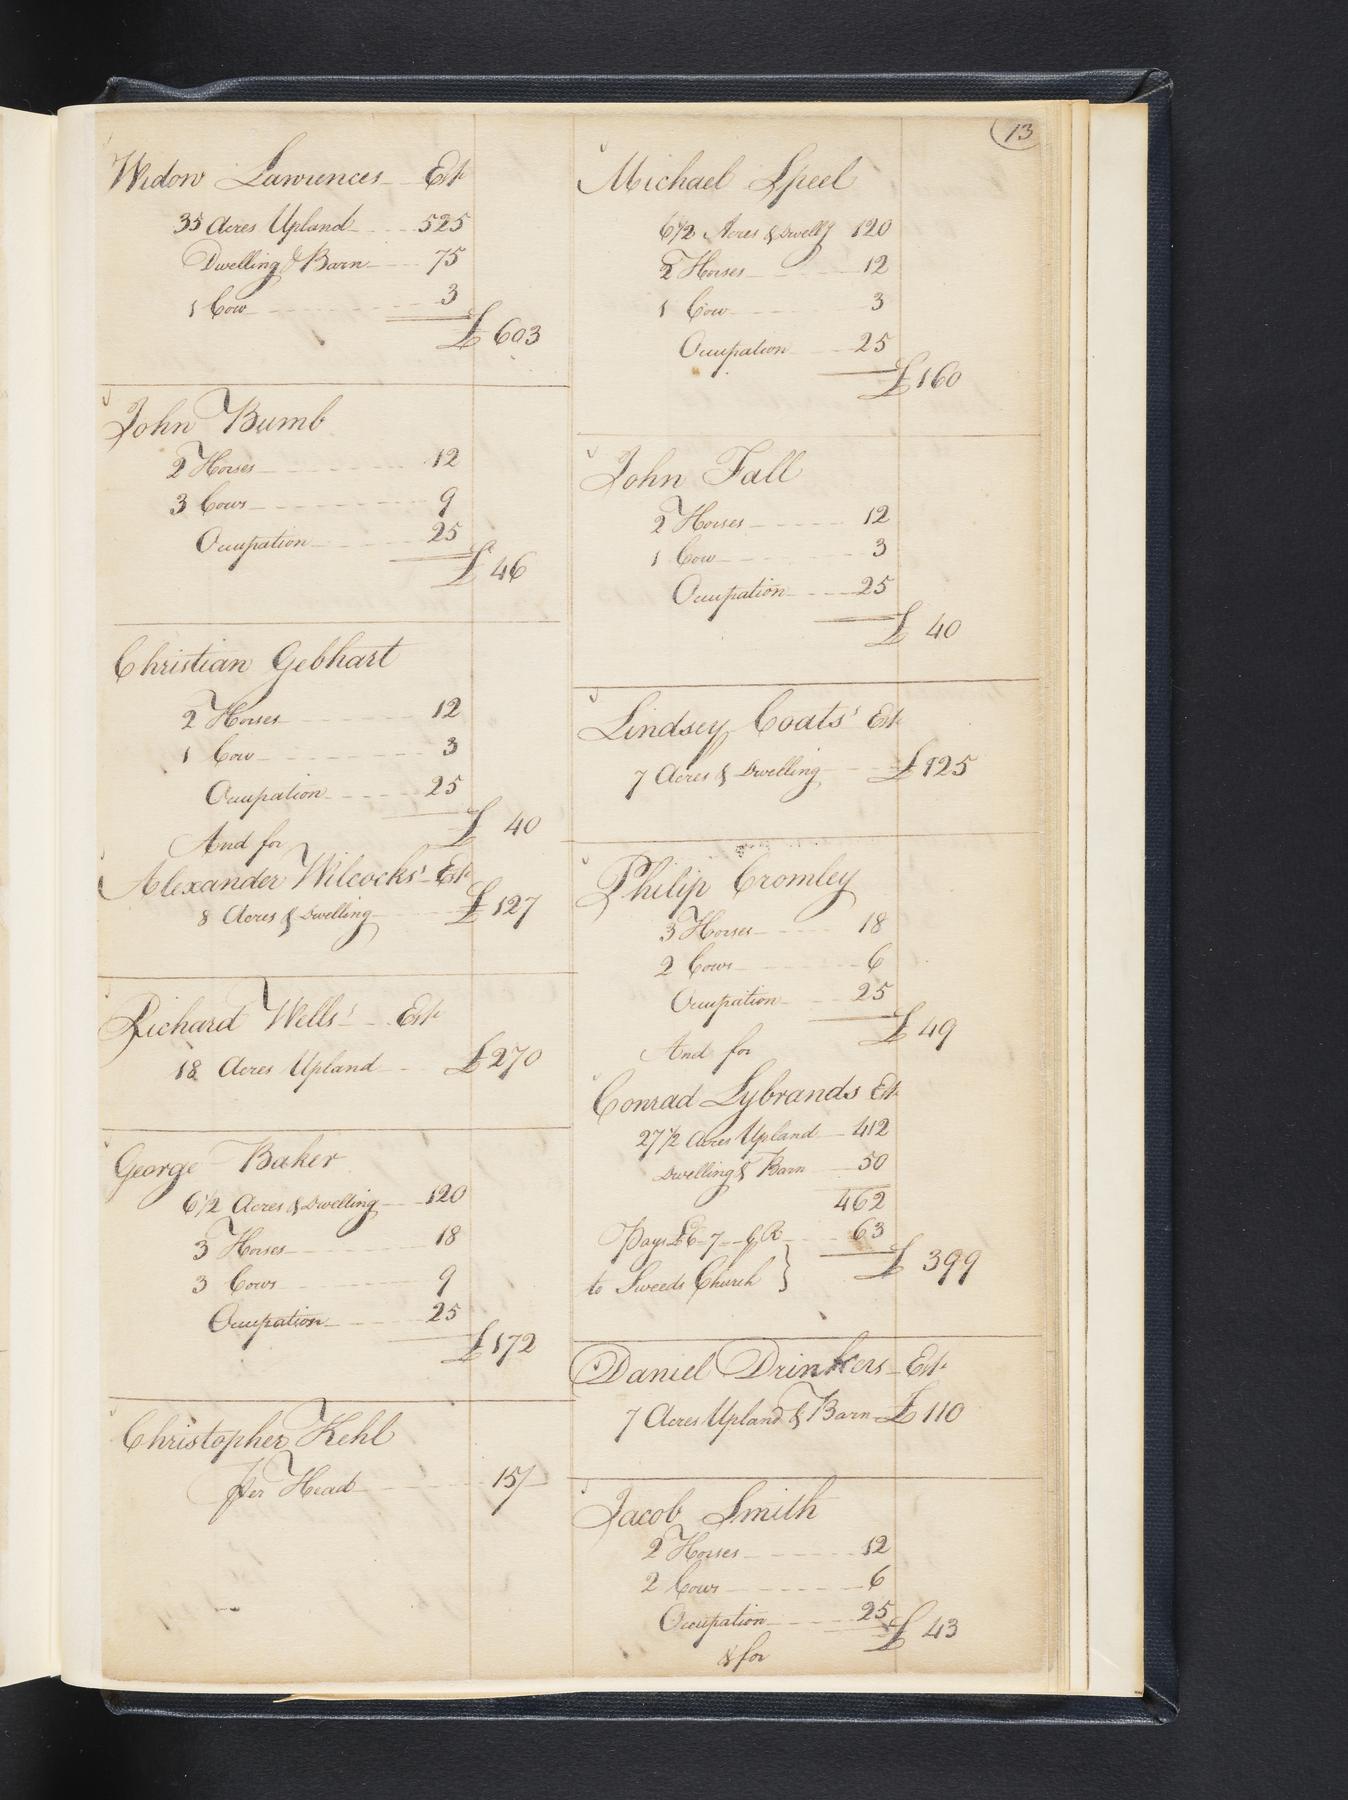 13
Widow Lawrences Est
35 Acres Upland 525
Dwelling & Barn 75
1 Cow 3
£ 603
John Bumb
2 Horses 12
3 Cows 9
Occupation 25
£ 46
Christian Gebhart
2 Horses 12
1 Cow 3
Occupation 25
£ 40
And for
Alexander Wilcocks' Est
8 Acres & Dwelling £ 127
Richard Wells' Est
18 Acres Upland £ 270
George Baker
6 1/2 Acres & Dwelling 120
3 Horses 18
3 Cows 9
Occupation 25
£ 172
Christopher Kehl
Per Head 15/
Michael Speel
6 1/2 Acres & Dwellg 120
2 Horses 12
1 Cow 3
Occupation 25
£ 160
John Fall
2 Horses 12
1 Cow 3
Occupation 25
£ 40
Lindsey Coats' Est
7 Acres & Dwelling £ 125
Philip Cromley
3 Horses 18
2 Cows 6
Occupation 25
£ 49
And for
Conrad Lybrands Est
27 1/2 Acres Upland 412
Dwelling & Barn 50
462
Pays £6-7- G R 63
to Sweeds Church } £ 399
Daniel Drinkers Est
7 Acres Upland & Barn £ 110
Jacob Smith
2 Horses 12
2 Cows 6
Occupation 25
£ 43
& for